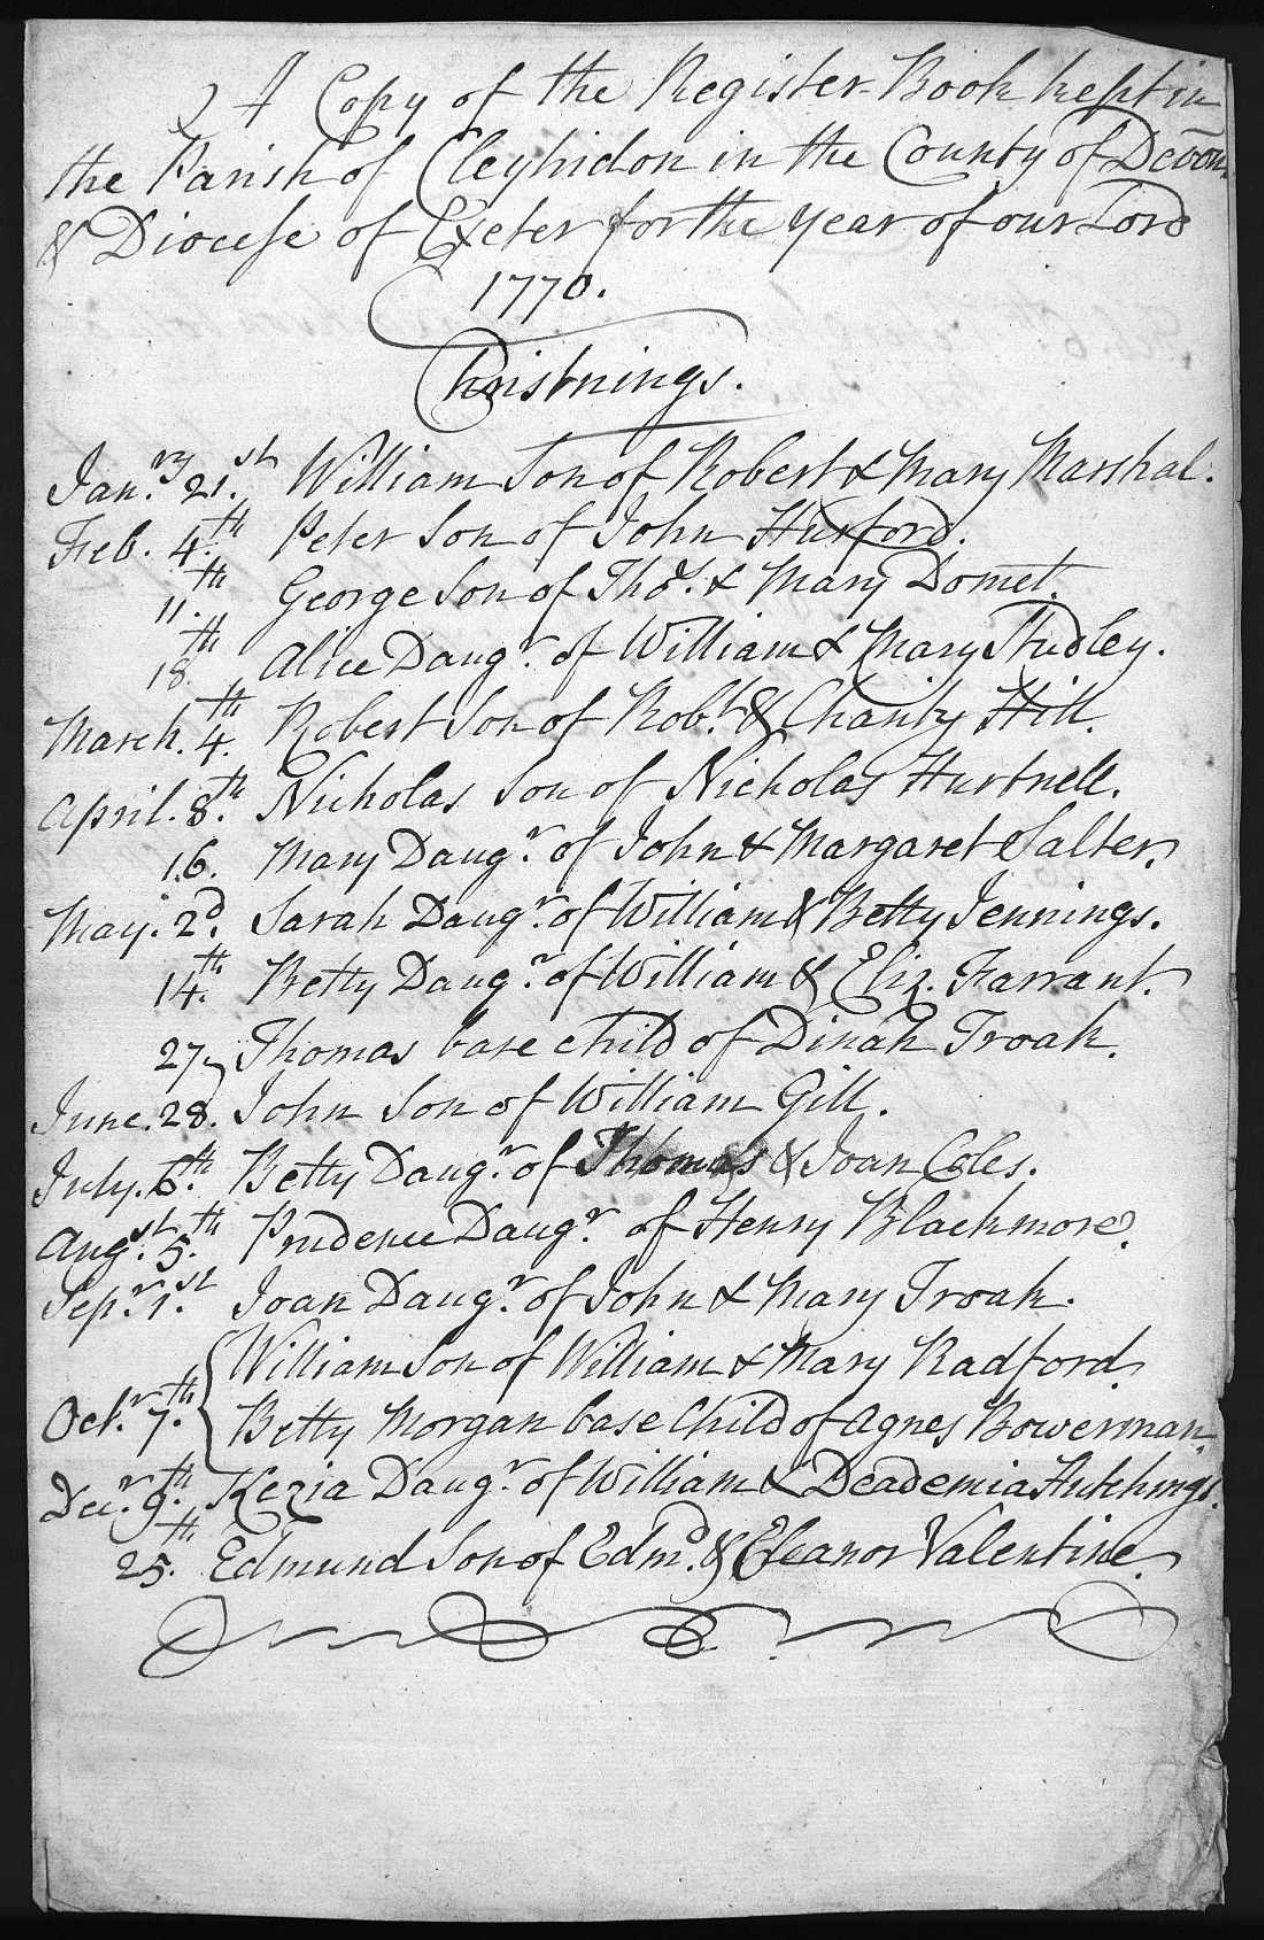 A Copy of the Register Book kept in
the Parish of Cleyhidon in the County of Devon
& Diocese of Exeter for the Year of our Lord
1770.
Christnings.
Jan.ry 21.st William Son of Robert & Mary Marshal.
Feb. 4.th Peter Son of John Huxford.
11.th George Son of Tho.s & Mary Domet.
18th Alice Daug.r of William & Mary Studley.
March. 4.th Robert Son of Rob.t & Charity Hill.
April. 8.th Nicholas Son of Nicholas Hurtnell.
16. Mary Daug.r of John & Margaret Salter.
May. 2.d Sarah Daug.r of William & Betty Jennings.
14.th Betty Daug.r of William & Eliz. Farrant.
27 Thomas base child of Dinah Troak.
June. 28. John Son of William Gill.
July. 6.th Betty Daug.r of Thomas & Joan Coles.
Aug.st 5.th Prudence Daug.r of Henry Blackmore.
Sep.r 1.st Joan Daug.r of John & Mary Troak.
William Son of William & Mary Radford.
Oct.r 7.th Betty Morgan base Child of Agnes Bowerman.
Dec.r 9.th Kezia Daug.r of William & Deademia Hutchings.
25.th Edmund Son of Edm.d & Eleanor Valentine.